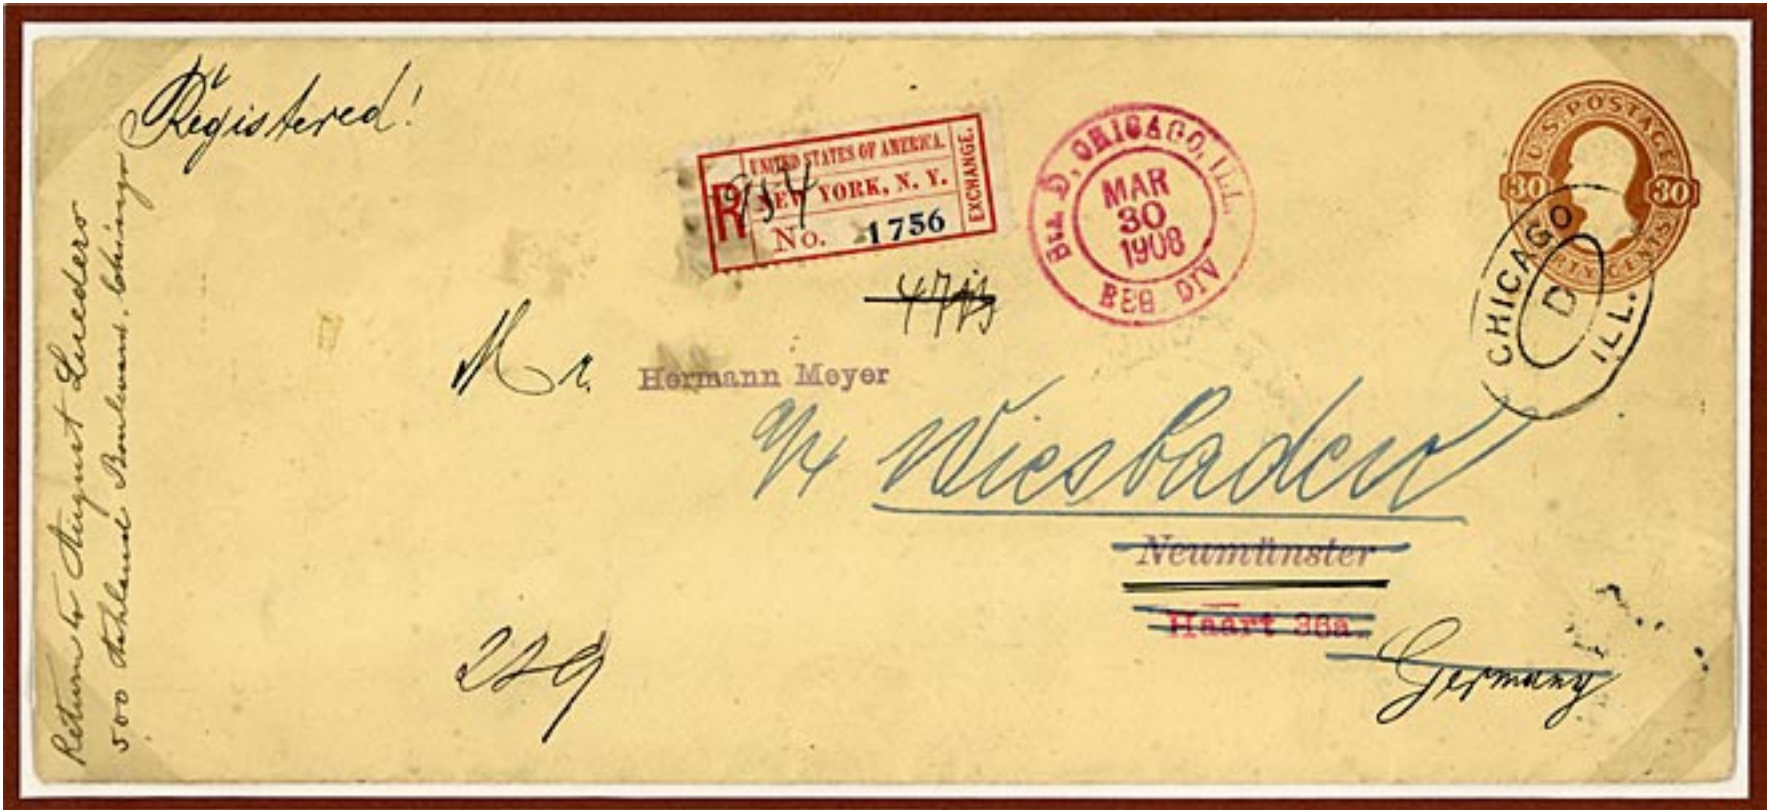 Registered!
Return to August Lueders
500 Ashland Boulevard. Chicago
UNITED STATES OF AMERICA.
R
NEW YORK, N. Y.
No. 1756
EXCHANGE.
Sta D, CHICAGO, ILL.
MAR
30
1908
REG DIV
U.S. POSTAGE
30 30
CENTS
CHICAGO
D
ILL.
Mr. Hermann Meyer
Wiesbaden
Neumünster
Haart 36a
Germany